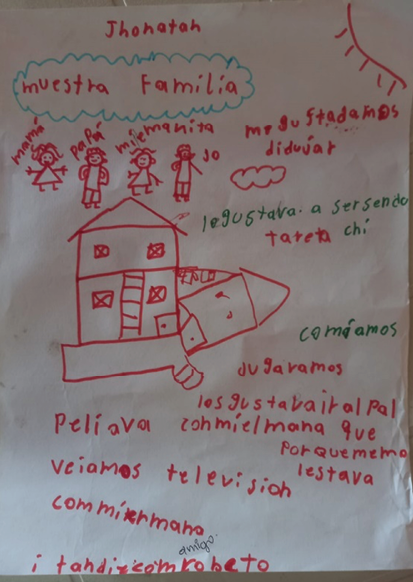 Jhonatan
muestra Familia
mamá
papá
mi emanita
Jo
me gustadamos
didujar
legustava. a sersendo
tareta chi
comíamos
Jugaramos
los gustavairalpal
Peliava conmielmana que
Porquememo
lestava
veiamos television
conmiermano
amigo.
i tandiencomrobeto